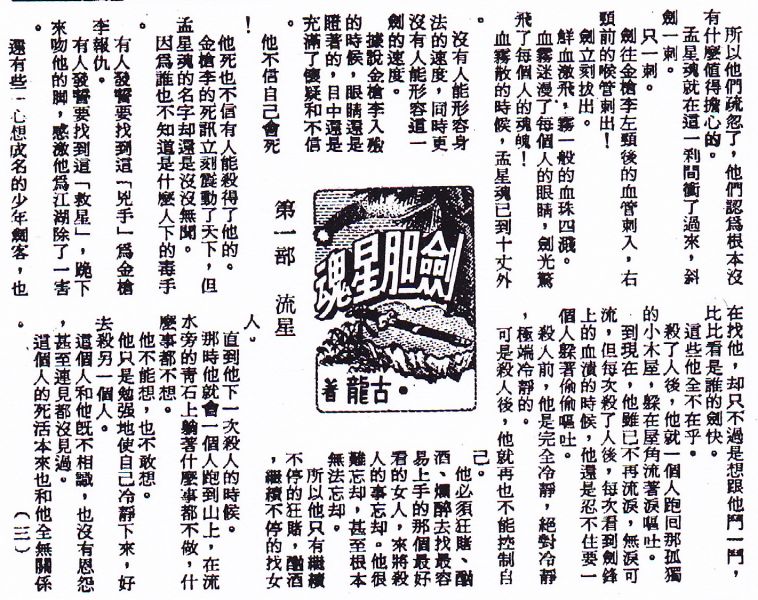 所以他們疏忽了，他們認爲根本沒
有什麼值得擔心的。
孟星魂就在這一刹間衝了過來，斜
劍一刺。
只一刺。
劍往金槍李左頸後的血管刺入，右
頸前的喉管刺出！
劍立刻拔出。
鮮血激飛，霧一般的血珠四濺。
血霧迷漫了每個人的眼睛，劍光驚
飛了每個人的魂魄！
血霧散的時候，孟星魂已到十丈外
。
沒有人能形容身
法的速度，同時更
沒有人能形容這一
劍的速度。
據說金槍李入殮
的時候，眼睛還是
瞪著的，目中還是
充滿了懷疑和不信
。
他不信自己會死
！
他死也不信有人能殺得了他的。
金槍李的死訊立刻震動了天下，但
孟星魂的名字却還是沒沒無聞。
因爲誰也不知道是什麼人下的毒手
。
有人發誓要找到這「兇手」爲金槍
李報仇。
有人發誓要找到這「救星」，跪下
來吻他的脚，感激他爲江湖除了一害
。
還有些一心想成名的少年劍客，也
魂星胆劍
著 龍古
第一部　流星
在找他，却只不過是想跟他鬥一鬥，
比比看是誰的劍快。
這些他全不在乎。
殺了人後，他就一個人跑囘那孤獨
的小木屋，躱在屋角流著淚嘔吐。
到現在，他雖已不再流淚，無淚可
流，但每次殺了人後，每次看到劍鋒
上的血漬的時候，他還是忍不住要一
個人躱著偷偷嘔吐。
殺人前，他是完全冷靜，絕對冷靜
，極端冷靜的。
可是殺人後，他就再也不能控制自
己。
他必須狂賭、酗
酒、爛醉去找最容
易上手的那個最好
看的女人，來將殺
人的事忘却。他很
難忘却，甚至根本
無法忘却。
所以他只有繼續
不停的狂賭，酗酒
，繼續不停的找女
人。
直到他下一次殺人的時候。
那時他就會一個人跑到山上，在流
水旁的靑石上躺著什麼事都不做，什
麼事都不想。
他不能想，也不敢想。
他只是勉强地使自己冷靜下來，好
去殺另一個人。
這個人和他旣不相識，也沒有恩怨
，甚至連見都沒見過。
這個人的死活本來也和他全無關係
。
（三）